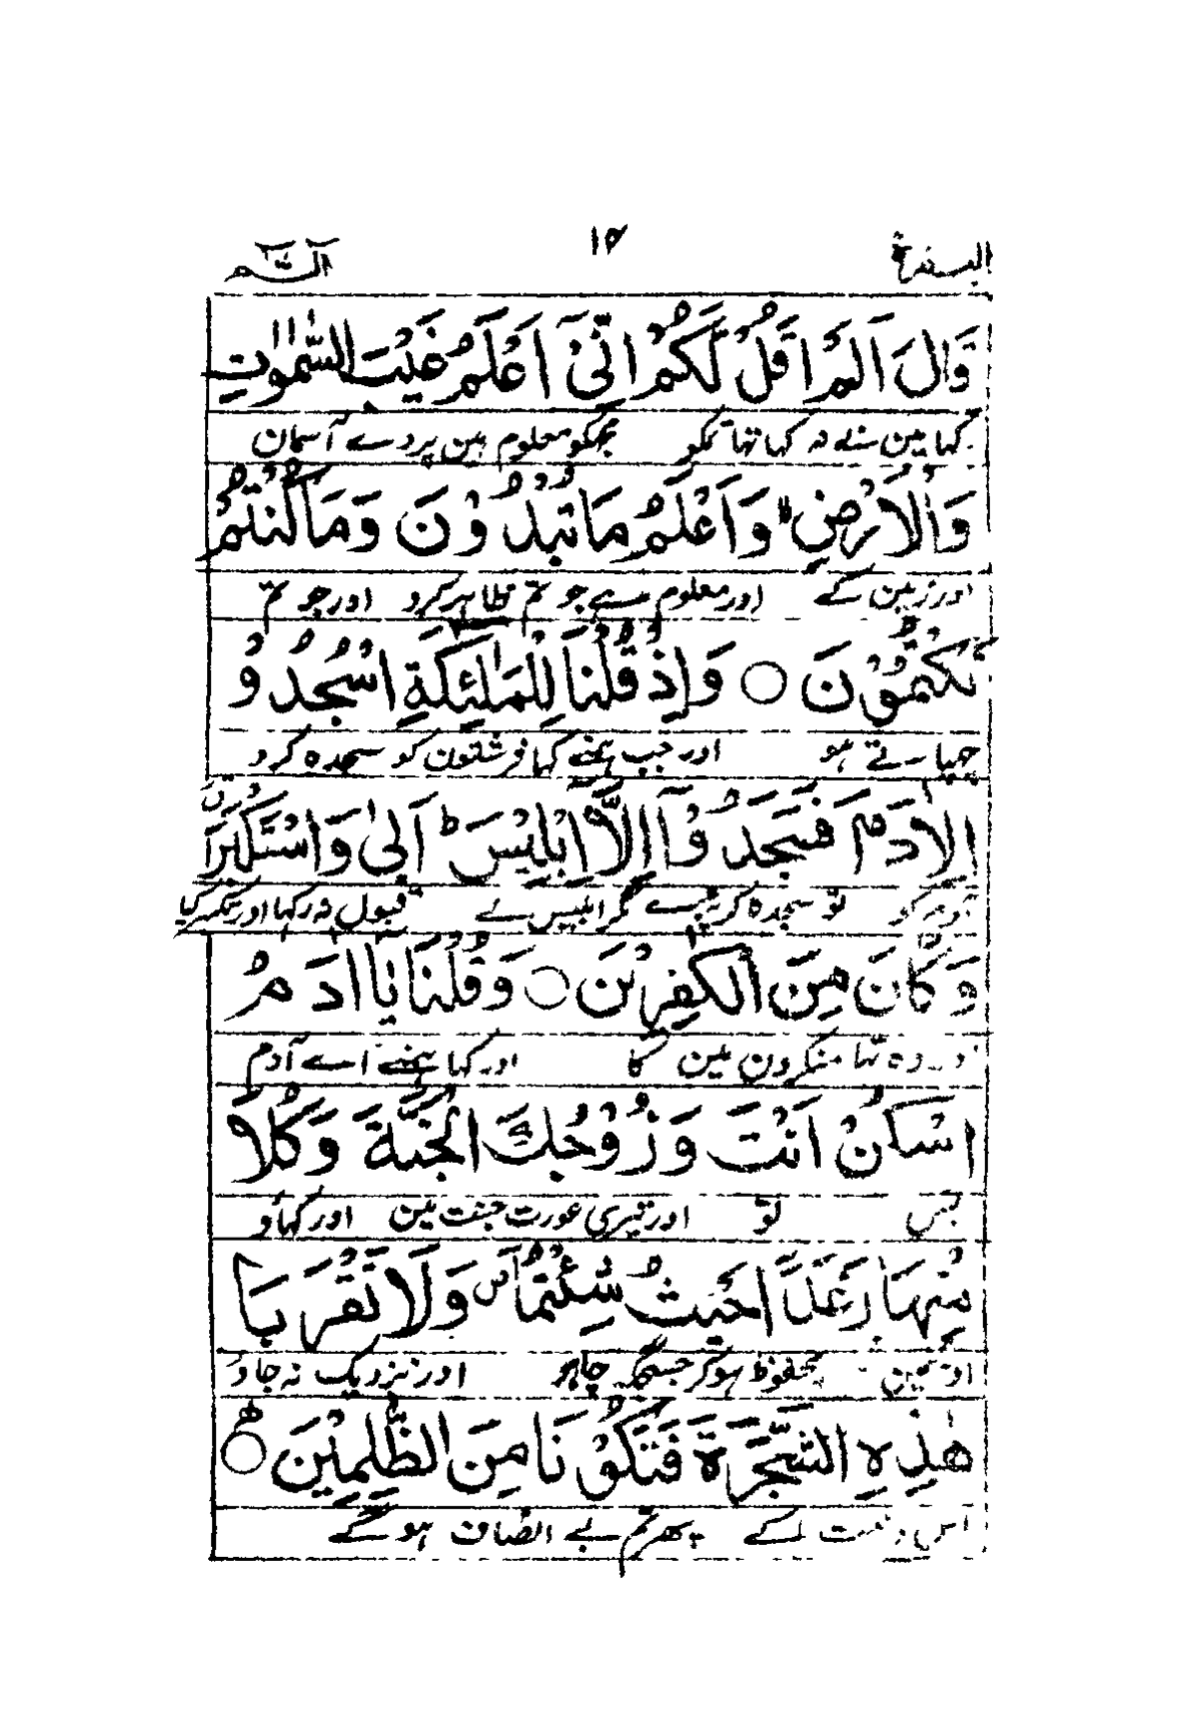 البقرة ١٥ الٓمٓ
قَالَ اَلَمْ اَقُلْ لَّكُمْ اِنِّیْٓ اَعْلَمُ غَیْبَ السَّمٰوٰتِ
کہا مین نے نہ کہا تہا تمکو مجھکو معلوم ہین پردے آسمان
وَالْاَرْضِ وَاَعْلَمُ مَا تُبْدُوْنَ وَمَا كُنْتُمْ
اور زمین کے اور معلوم ہے جو تم ظاہر کرو اور جو تم
تَكْتُمُوْنَ ○ وَاِذْ قُلْنَا لِلْمَلٰٓئِكَةِ اسْجُدُوْ
چھپاتے ہو اور جب ہمنے کہا فرشتون کو سجدہ کرو
الِاٰدَمَ فَسَجَدُوْٓا اِلَّآ اِبْلِیْسَ ط اَبٰی وَاسْتَكْبَرَ
آدم کو تو سجدہ کر پڑے مگر ابلیس نے قبول نہ رکہا اور تکبر کیا
وَكَانَ مِنَ الْكٰفِرِیْنَ ○ وَقُلْنَا یَا اٰدَمُ
اور وہ تہا منکرون مین کا اور کہا ہمنے اے آدم
اسْكُنْ اَنْتَ وَزَوْجُكَ الْجَنَّةَ وَكُلَا
بس تو اور تیری عورت جنت مین اور کہاؤ
مِنْهَا رَغَدًا حَیْثُ شِئْتُمَا ص وَلَا تَقْرَبَا
محفوظ ہوکر جس جگہ چاہو اور نزدیک نہ جاؤ
هٰذِهِ الشَّجَرَةَ فَتَكُوْنَا مِنَ الظّٰلِمِیْنَ ○
اس درخت کے پھر تم بے انصاف ہوگے